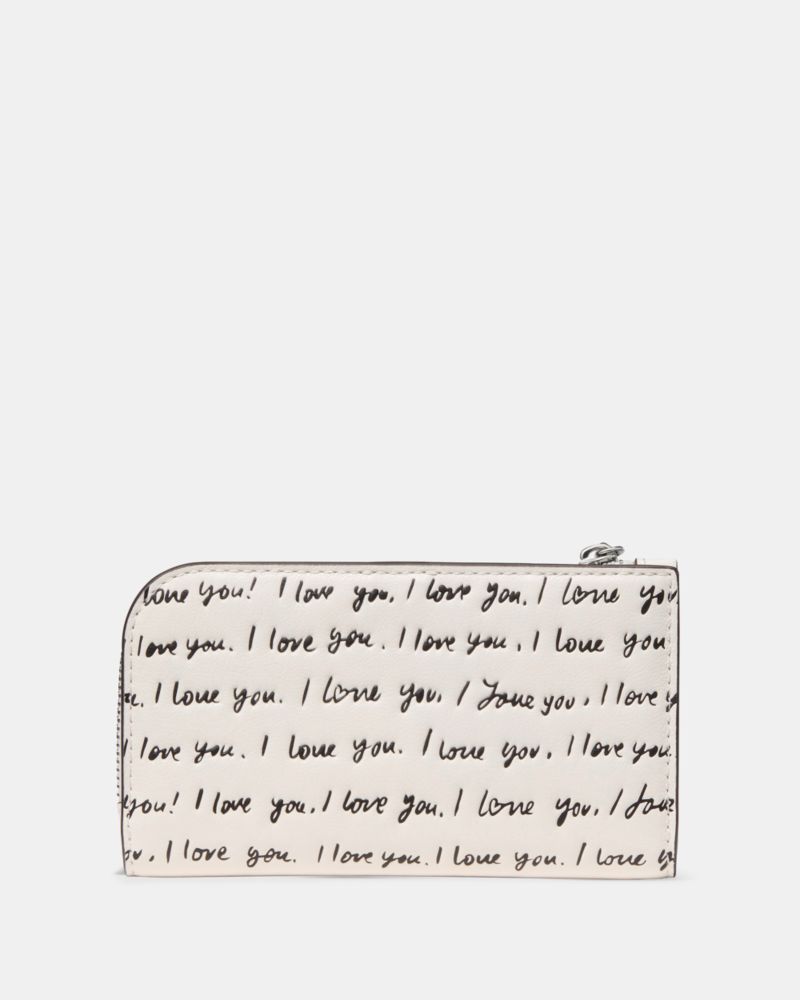 love you! I love you. I love you. I love you
I love you. I love you. I love you. I love you
I love you. I love you. I love you. I love
I love you. I love you. I love you. I love you
you! I love you. I love you. I love you. I love
I love you. I love you. I love you. I love